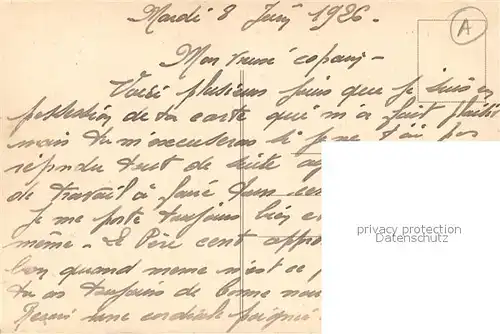 Mardi 8 Juin 1926.
A
Mon copain -
Voici plusieurs jours que je suis en
possession de ta carte qui m'a fait plaisir
mais tu m'excuseras si je ne t'ai pas
répondu tout de suite
de travail à faire dans
je me porte toujours bien
même - Le Père cent
bon quand meme n'est ce
tu as toujours de bonne
Reçois une cordiale poignée
privacy protection
Datenschutz